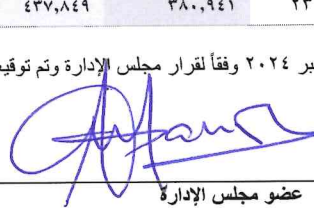 ٤٣٧,٨٤٩ ٣٨٠,٩٤١ ٢٣
٢٠٢٤ وفقاً لقرار مجلس الإدارة وتم توقيع
عضو مجلس الإدارة